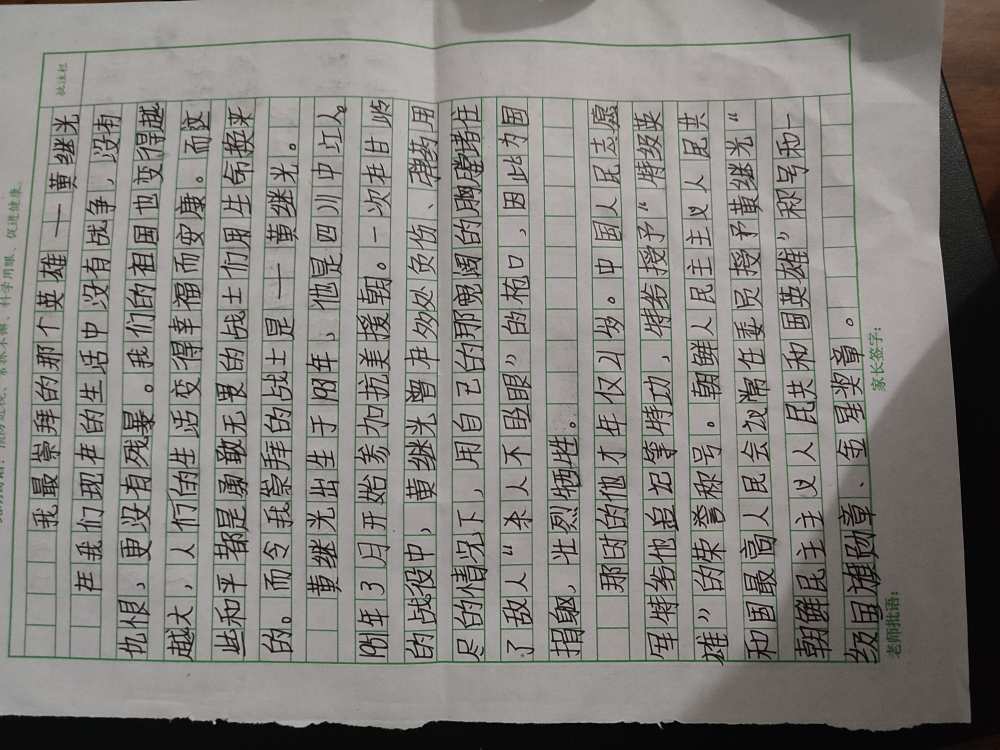 预防近视、常抓不懈、科学用眼、促进健康。
批注栏
我最崇拜的那个英雄——黄继光
在我们现在的生活中没有战争，没有
仇恨，更没有残暴。我们的祖国也变得越
越大，人们的生活变得幸福而安康。而这
些和平都是勇敢无畏的战士们用生命换来
的。而令我崇拜的战士是——黄继光。
黄继光出生于1931年，他是四川中江人。
1951年3月开始参加抗美援朝。一次在甘岭
的战役中，黄继光曾在多处负伤、弹药用
尽的情况下，用自己的那宽阔的胸膛堵住
了敌人“杀人不眨眼”的枪口，因此为国
捐躯，壮烈牺牲。
那时的他才年仅21岁。中国人民志愿
军特给他追记等特功，特给授予“特级英
雄”的荣誉称号。朝鲜人民主主义人民共
和国最高人民会议常在委员授予黄继光“
朝鲜民主主义人民共和国英雄”称号和一
级国旗勋章、金星奖章。
老师批语：
家长签字：